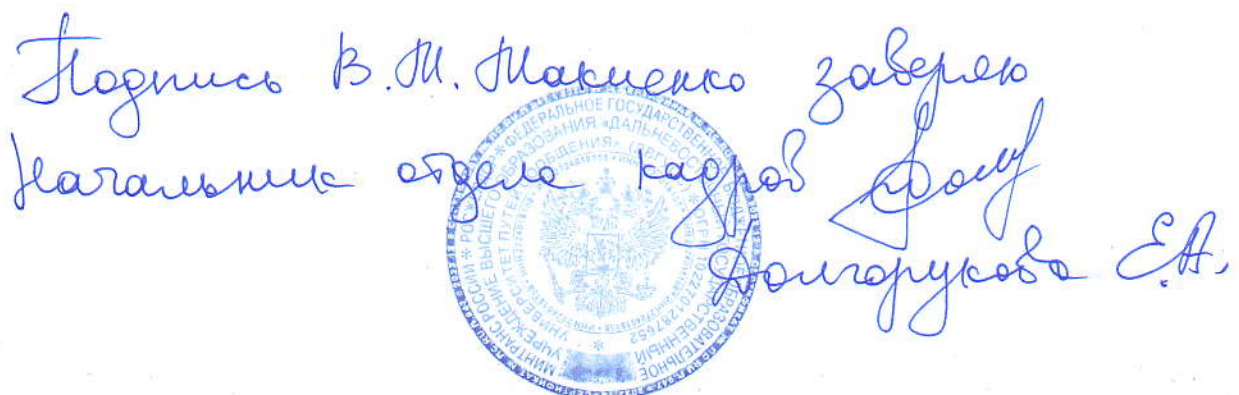 Подпись В.М. Макиенко заверяю
Начальник отдела кадров
Долгорукова Е.А.
МИНТРАНС РОССИИ * РО
* ФЕДЕРАЛЬНОЕ ГОСУДАРСТВЕННОЕ БЮДЖЕТНОЕ ОБРАЗОВАТЕЛЬНОЕ
УЧРЕЖДЕНИЕ ВЫСШЕГО ОБРАЗОВАНИЯ «ДАЛЬНЕВОСТОЧНЫЙ ГОСУДАРСТВЕННЫЙ
УНИВЕРСИТЕТ ПУТЕЙ СООБЩЕНИЯ» (ДВГУПС) * ОГРН 1022701287652 *